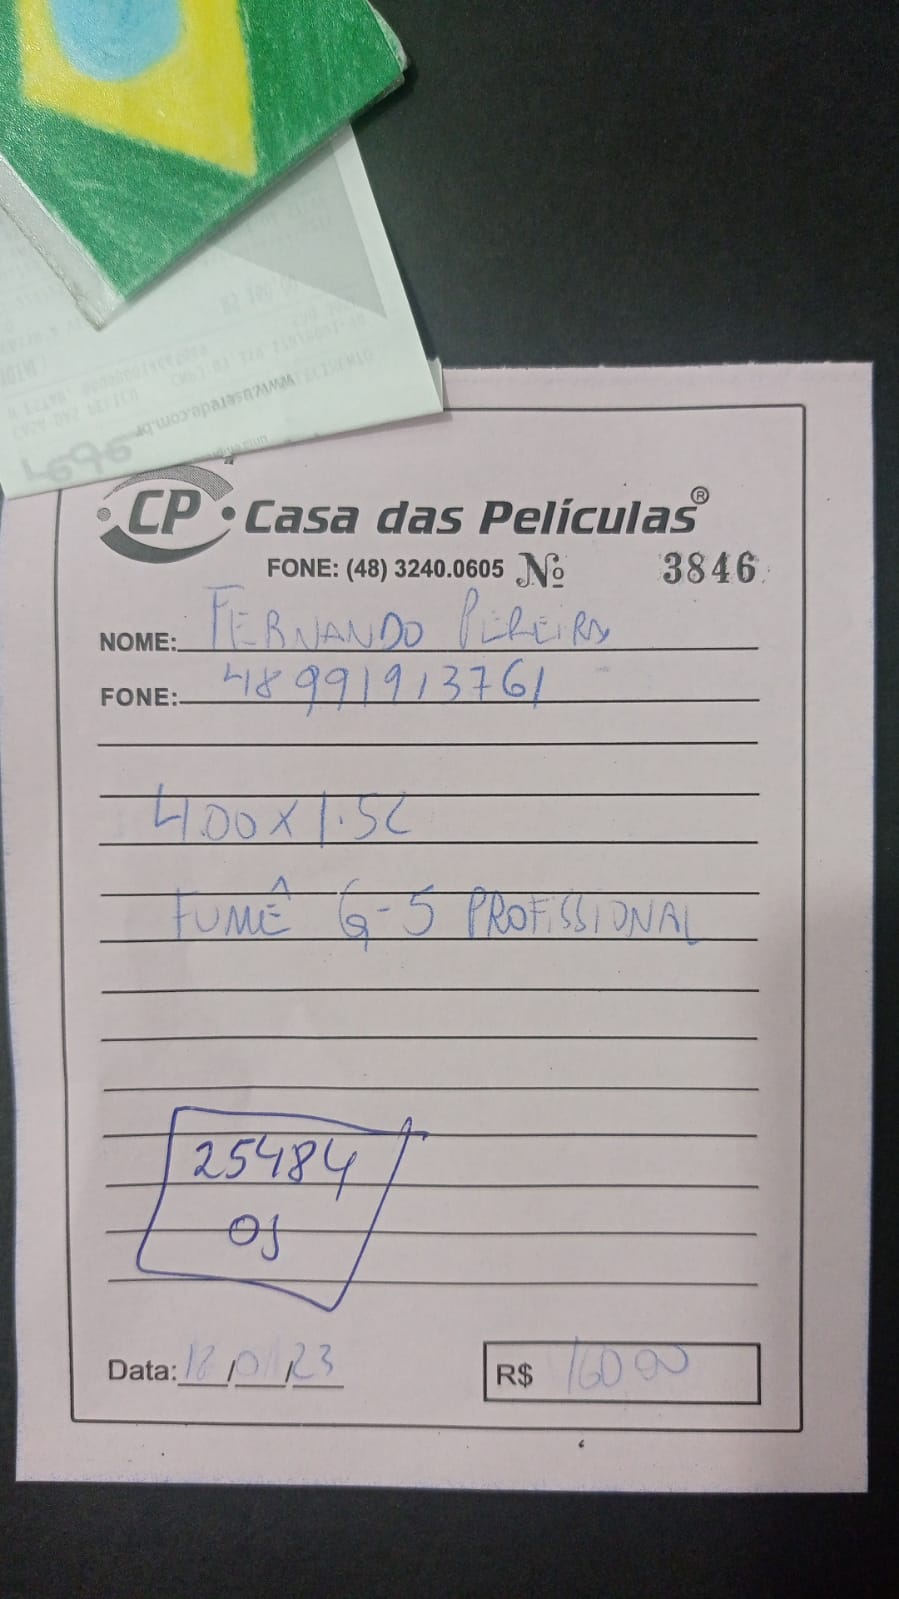 www.userede.com.br
rede
CP Casa das Películas®
FONE: (48) 3240.0605 Nº 3846
NOME: FERNANDO PEREIRA
FONE: 48991913761
4.00 X 1.52
FUMÊ G-5 PROFISSIONAL
25484
OS
Data: 18/01/23 R$ 160 00